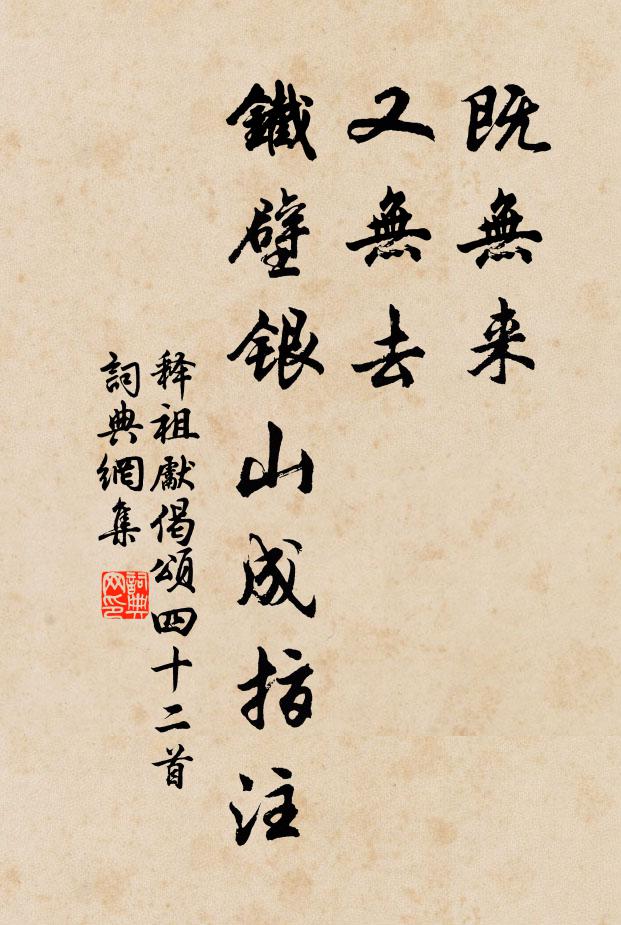 既無来
又無去
鐵壁銀山成指注
释祖獻偈頌四十二首
詞典網集
詞典网印